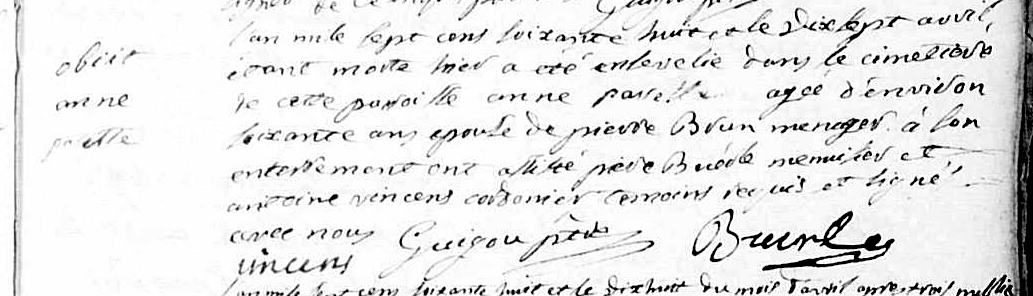 Guigou
obiit
anne
l'an mile sept cens soixante huit et le dix sept avril,
étant morte hier a été ensevelie dans le cimetiere
de cette paroisse anne agée d'environ
soixante ans epouse de pierre Brun menager. à son
enterrement ont assisté menuisier et
antoine vincens cordonier temoins requis et signés
avec nous Guigou ptre
vincens
l'an mile sept cens soixante huit et le dixhuit du mois d'avril